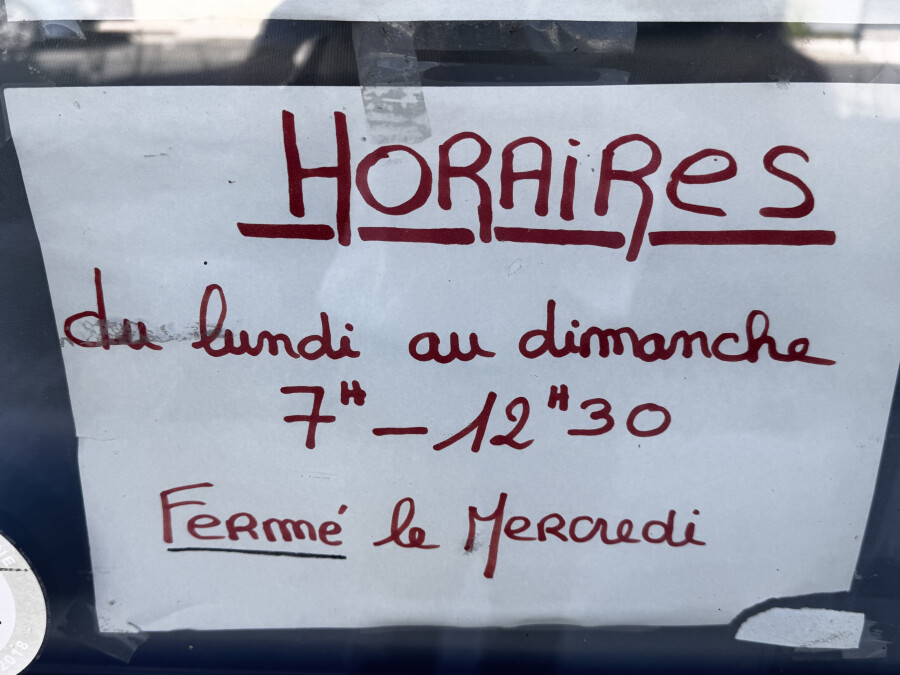 HORAiRes
du lundi au dimanche
7H - 12H30
FeRmé le Mercredi
2018